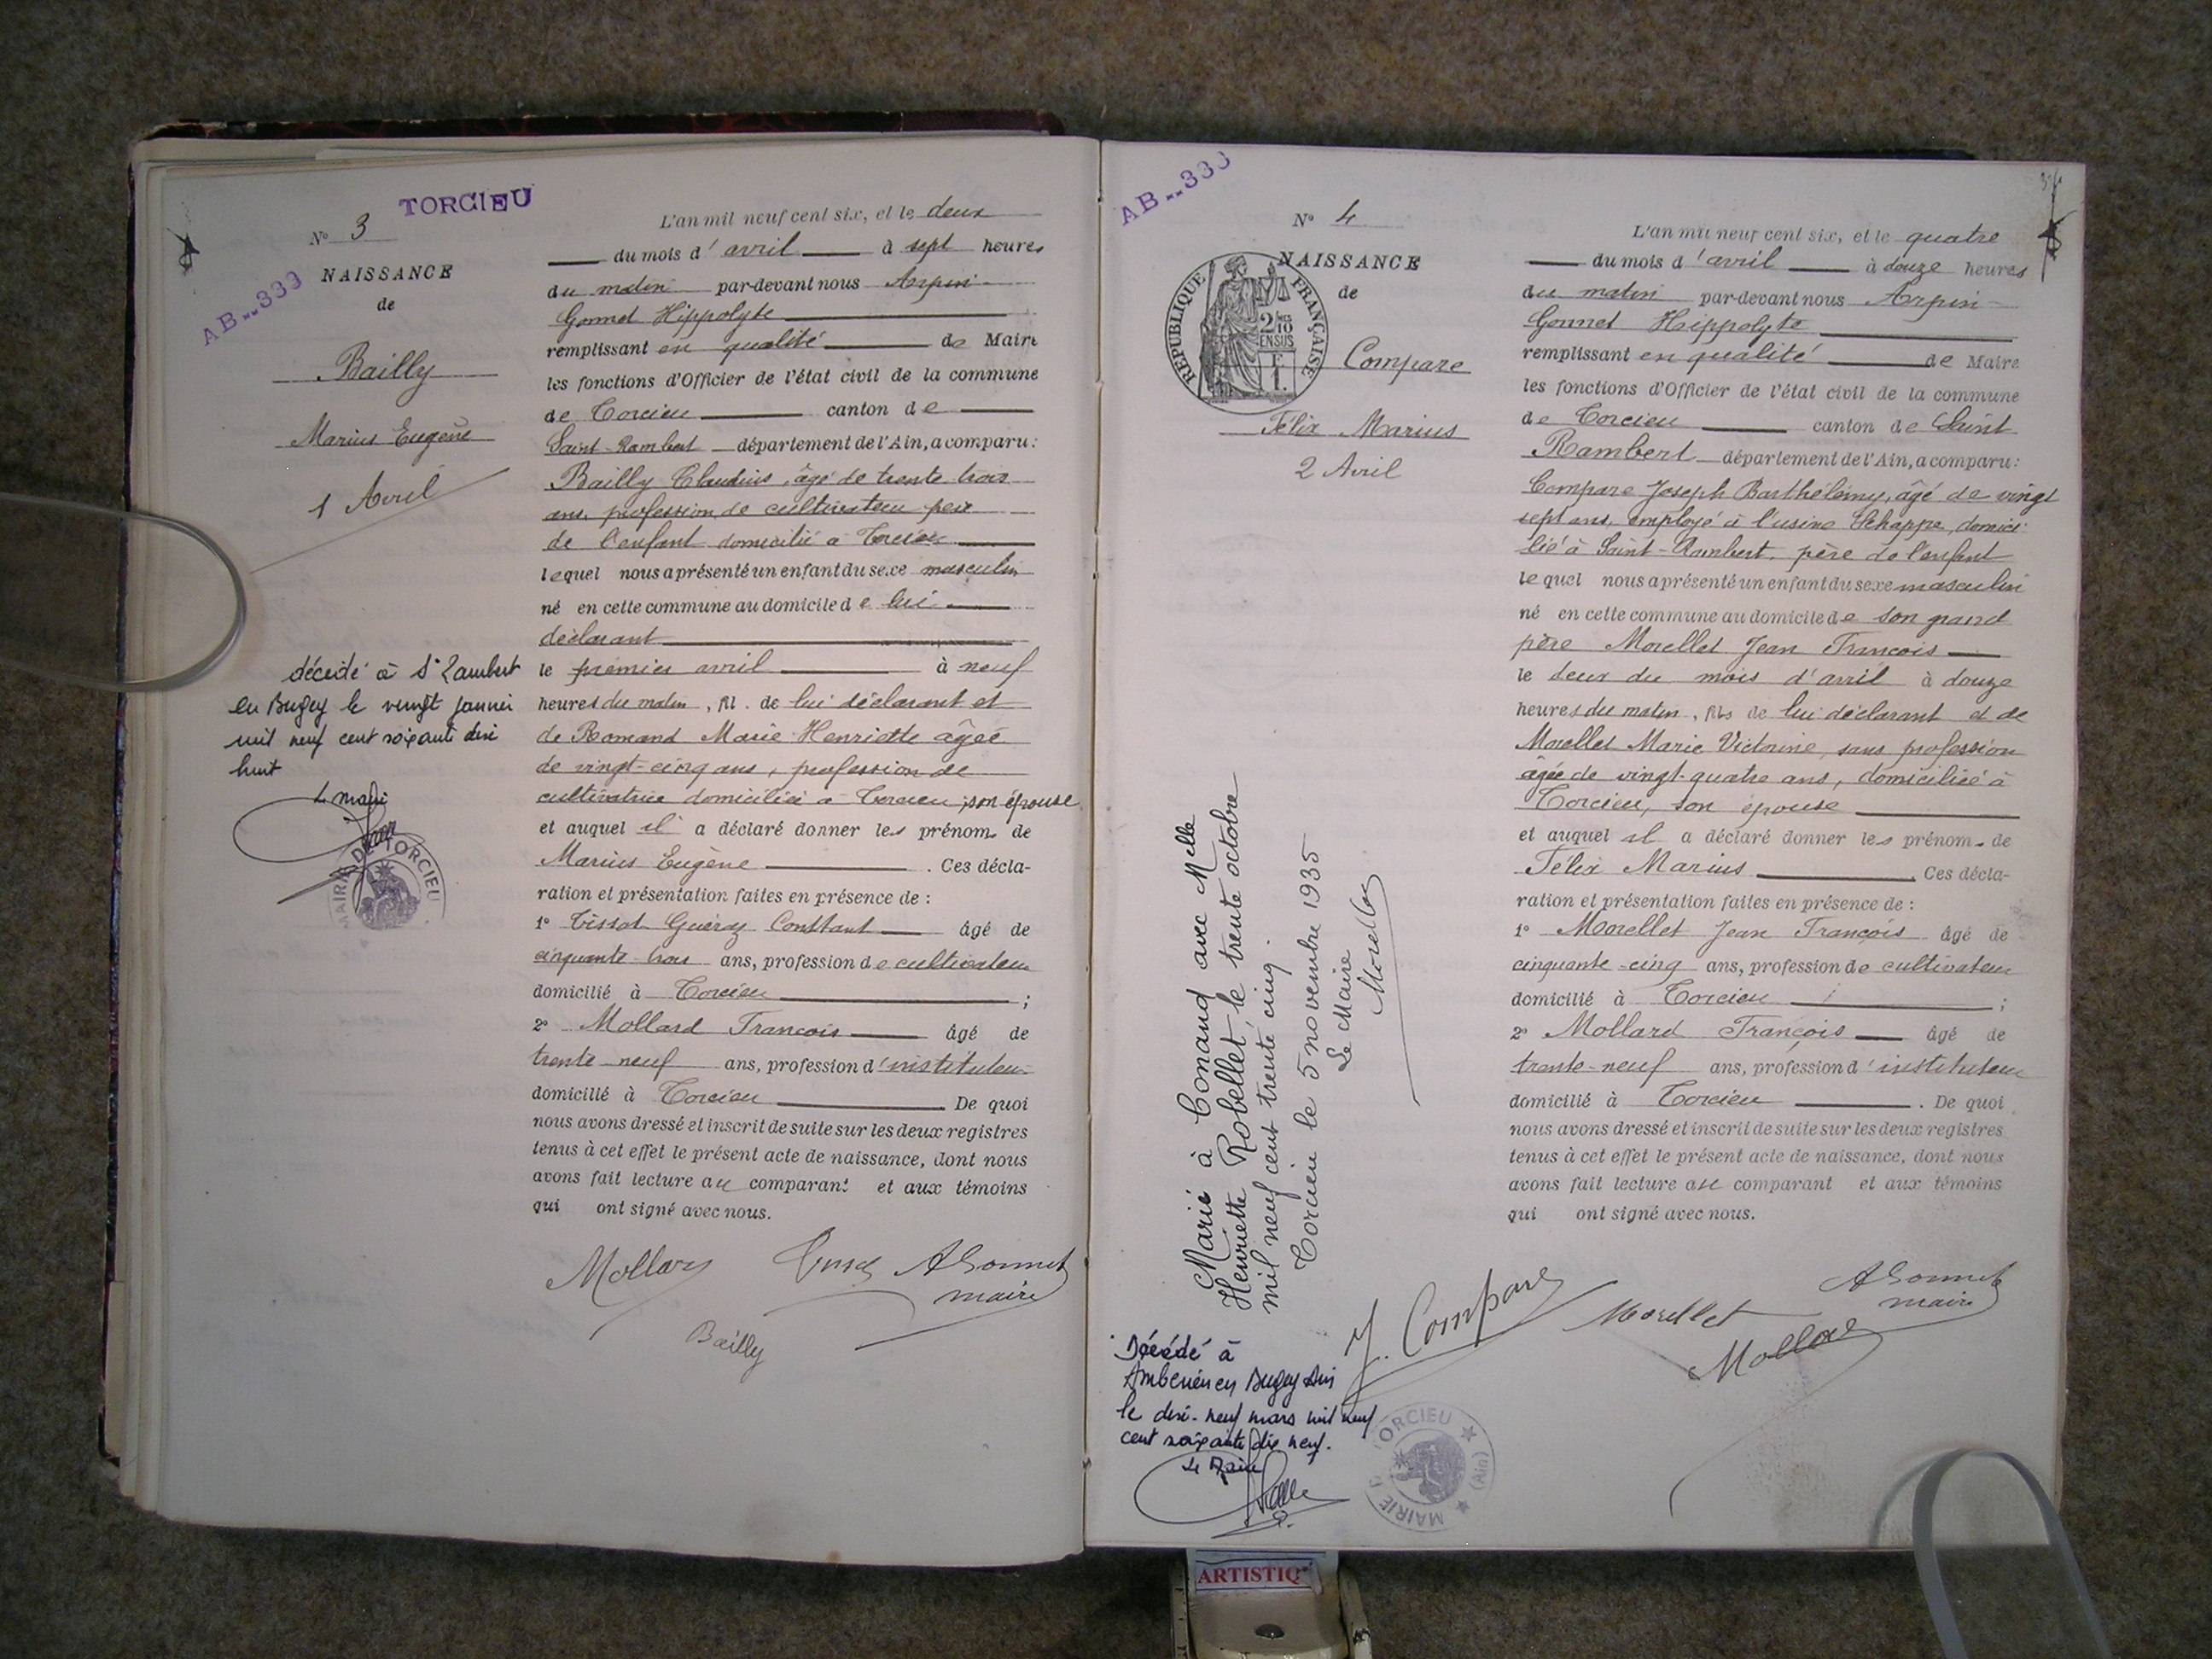 TORCIEU
AB--333
N° 3
NAISSANCE
de
Bailly
Marius Eugène
1 Avril
décédé à St Rambert
en Bugey le vingt janvier
mil neuf cent soixante dix
huit
MAIRIE DE TORCIEU
L'an mil neuf cent six, et le deux
du mois d'avril à sept heures
du matin par-devant nous Arpin
Gonnet Hippolyte
remplissant en qualité de Maire
les fonctions d'Officier de l'état civil de la commune
de Torcieu canton de
Saint-Rambert département de l'Ain, a comparu:
Bailly Claudius, âgé de trente trois
ans, profession de cultivateur père
de l'enfant domicilié à Torcieu
lequel nous a présenté un enfant du sexe masculin
né en cette commune au domicile de lui
déclarant
le premier avril à neuf
heures du matin, fil. de lui déclarant et
de Romand Marie Henriette âgée
de vingt-cinq ans, profession de
cultivatrice domiciliée à Torcieu, son épouse
et auquel il a déclaré donner les prénoms de
Marius Eugène. Ces décla-
ration et présentation faites en présence de :
1° Tissot Guerraz Constant âgé de
cinquante-trois ans, profession de cultivateur
domicilié à Torcieu ;
2° Mollard François âgé de
trente-neuf ans, profession d'instituteur
domicilié à Torcieu. De quoi
nous avons dressé et inscrit de suite sur les deux registres
tenus à cet effet le présent acte de naissance, dont nous
avons fait lecture au comparant et aux témoins
qui ont signé avec nous.
Mollard AGonnet
maire
Bailly
AB--333
N° 4
NAISSANCE
de
REPUBLIQUE FRANÇAISE
2/10
EN SUS
1 F.
Compare
Félix Marius
2 Avril
Marié à Conand avec Melle
Henriette Robellet, le trente octobre
mil neuf cent trente cinq.
Torcieu le 5 novembre 1935
Le Maire
Morellet
Décédé à
Ambérieu en Bugey Ain
le dix-neuf mars mil neuf
cent soixante dix neuf.
Le Maire
MAIRIE TORCIEU (Ain)
L'an mil neuf cent six, et le quatre
du mois d'avril à douze heures
du matin par-devant nous Arpin
Gonnet Hippolyte
remplissant en qualité de Maire
les fonctions d'Officier de l'état civil de la commune
de Torcieu canton de Saint
Rambert département de l'Ain, a comparu:
Compare Joseph Barthélemy, âgé de vingt
sept ans, employé à l'usine Schappe, domici-
lié à Saint-Rambert, père de l'enfant
lequel nous a présenté un enfant du sexe masculin
né en cette commune au domicile de son grand
père Morellet Jean François
le deux du mois d'avril à douze
heures du matin, fils de lui déclarant et de
Morellet Marie Victorine, sans profession
âgée de vingt-quatre ans, domiciliée à
Torcieu, son épouse
et auquel il a déclaré donner les prénoms de
Félix Marius. Ces décla-
ration et présentation faites en présence de :
1° Morellet Jean François âgé de
cinquante-cinq ans, profession de cultivateur
domicilié à Torcieu ;
2° Mollard François âgé de
trente-neuf ans, profession d'instituteur
domicilié à Torcieu. De quoi
nous avons dressé et inscrit de suite sur les deux registres
tenus à cet effet le présent acte de naissance, dont nous
avons fait lecture au comparant et aux témoins
qui ont signé avec nous.
J. Compare Morellet AGonnet
maire
Mollard
ARTISTIQ